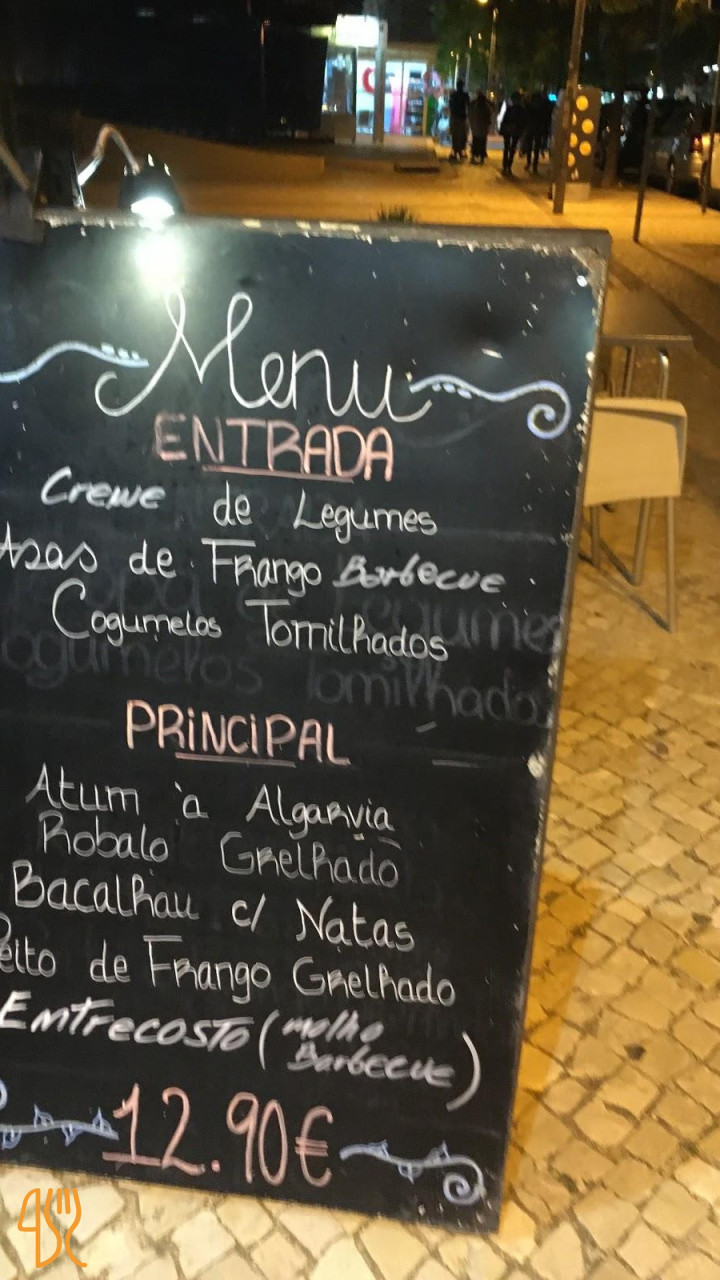 Menu
ENTRADA
Creme de Legumes
Asas de Frango Barbecue
Cogumelos Tomilhados
PRiNCiPAL
Atum à Algarvia
Robalo Grelhado
Bacalhau c/ Natas
Peito de Frango Grelhado
Entrecosto (molho
Barbecue)
12.90€